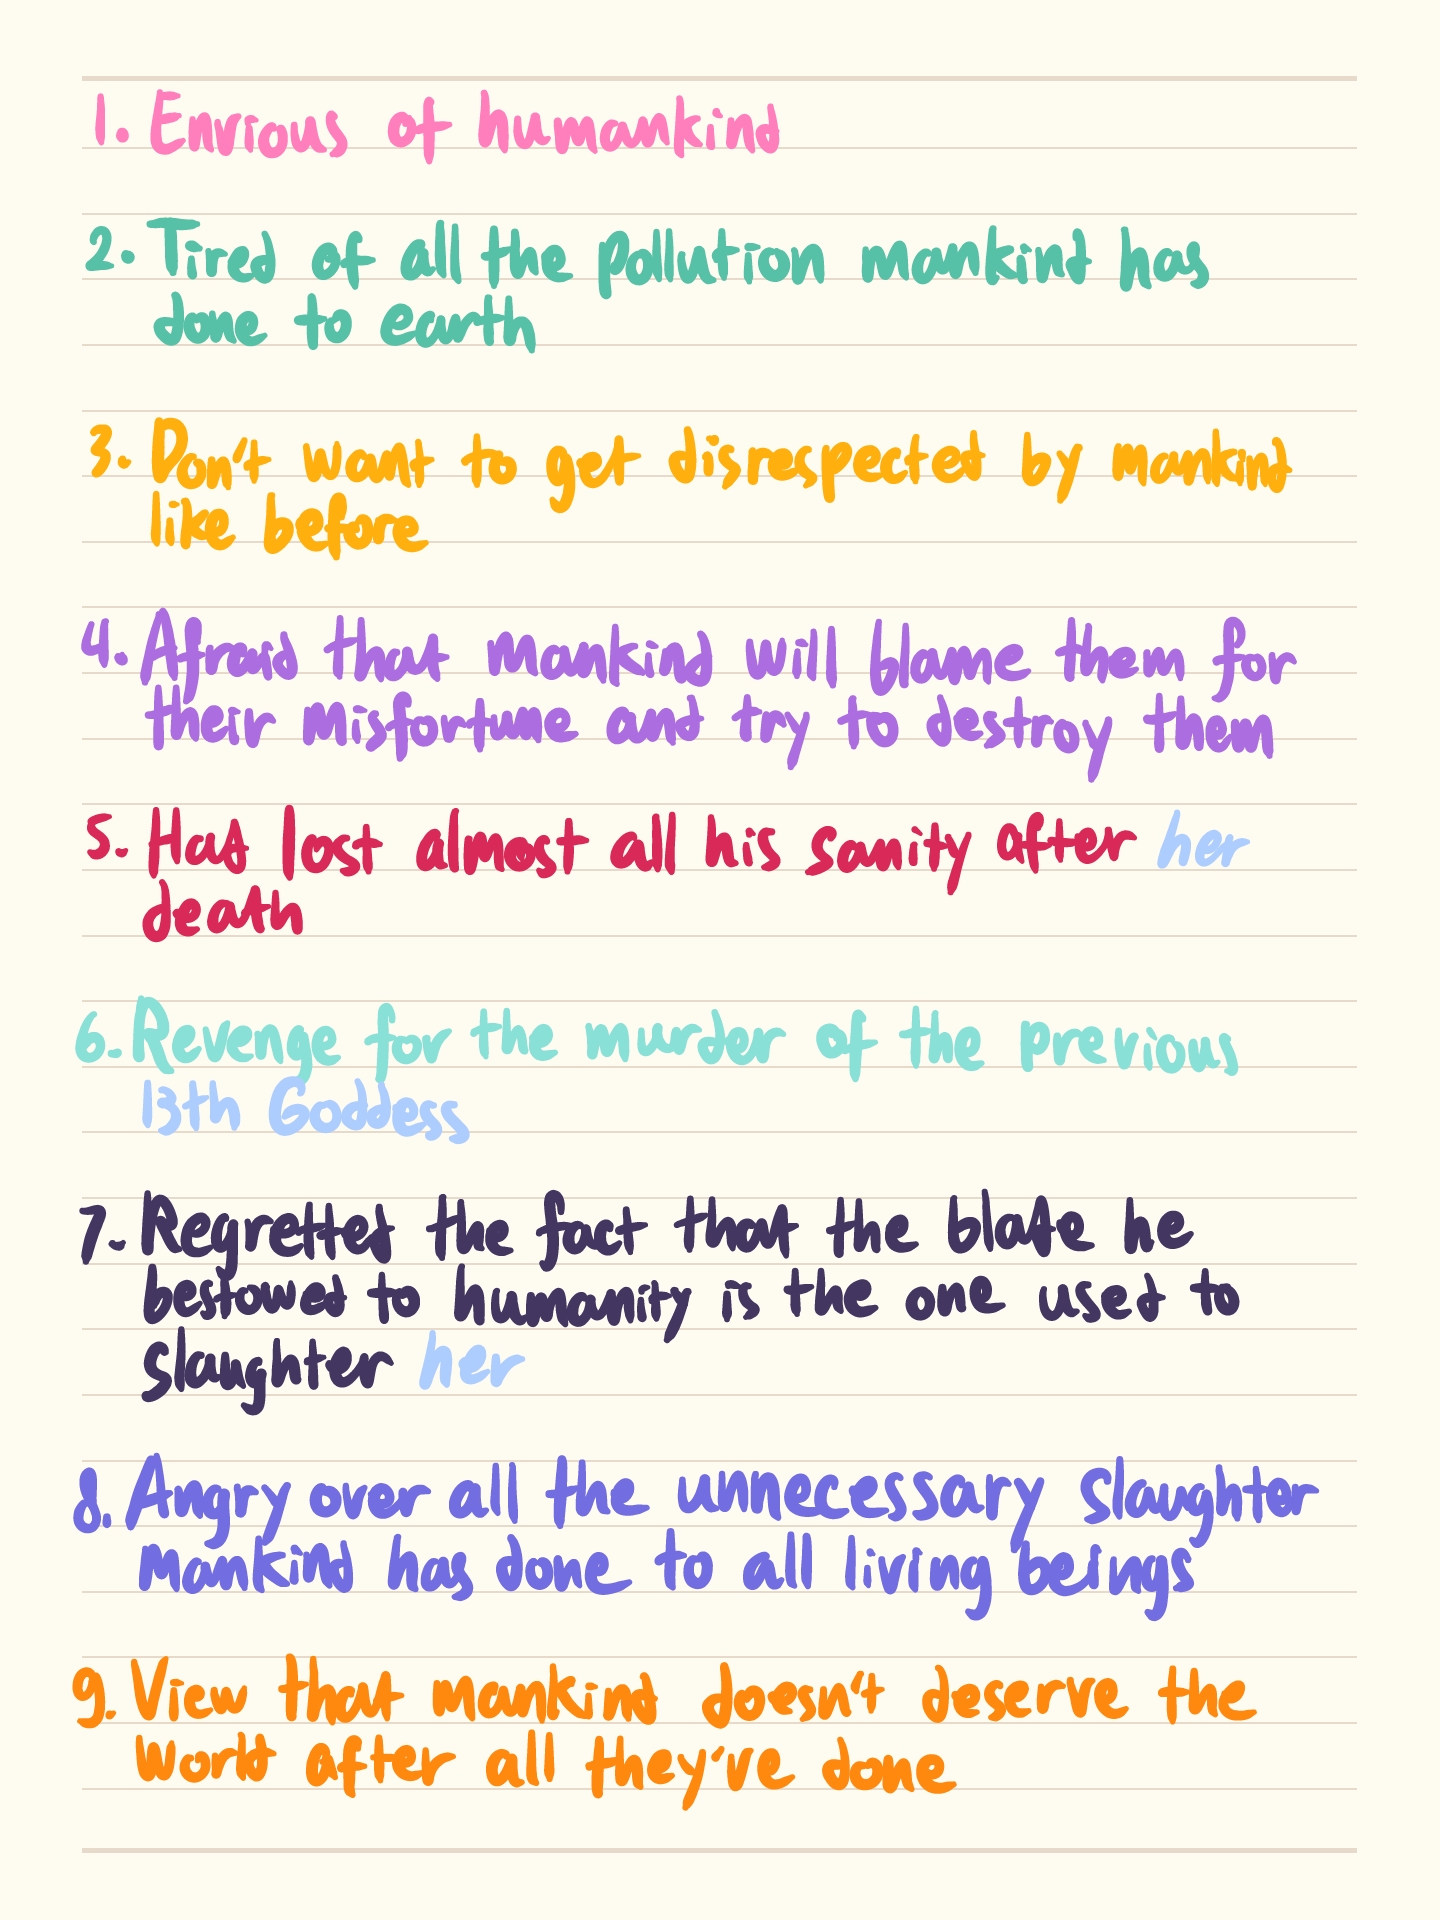 1. Envious of humankind
2. Tired of all the pollution mankind has
done to earth
3. Don't want to get disrespected by mankind
like before
4. Afraid that mankind will blame them for
their misfortune and try to destroy them
5. Had lost almost all his sanity after her
death
6. Revenge for the murder of the previous
13th Goddess
7. Regretted the fact that the blade he
bestowed to humanity is the one used to
slaughter her
8. Angry over all the unnecessary slaughter
mankind has done to all living beings
9. View that mankind doesn't deserve the
world after all they've done